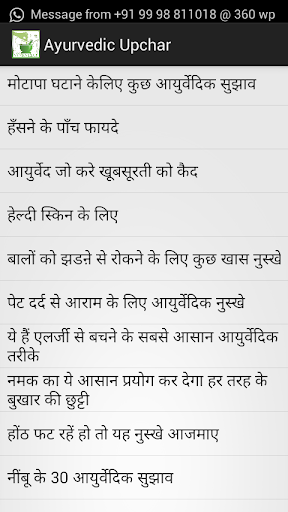 Message from +91 99 98 811018 @ 360 wp
Ayurvedic Upchar
मोटापा घटाने केलिए कुछ आयुर्वेदिक सुझाव
हँसने के पाँच फायदे
आयुर्वेद जो करे खूबसूरती को कैद
हेल्दी स्किन के लिए
बालों को झडऩे से रोकने के लिए कुछ खास नुस्खे
पेट दर्द से आराम के लिए आयुर्वेदिक नुस्खे
ये हैं एलर्जी से बचने के सबसे आसान आयुर्वेदिक
तरीके
नमक का ये आसान प्रयोग कर देगा हर तरह के
बुखार की छुट्टी
होंठ फट रहें हो तो यह नुस्खे आजमाए
नींबू के 30 आयुर्वेदिक सुझाव